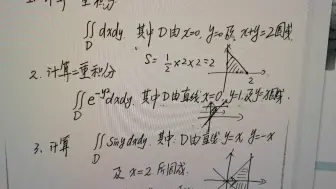 1. 计算二重积分
∬_D dxdy. 其中D由x=0, y=0及x+y=2围成
S=1/2×2×2=2
2
2. 计算二重积分
∬_D e^{-y²}dxdy. 其中D由直线x=0, y=1及y=x围成.
3. 计算 ∬_D siny dxdy. 其中D由直线y=x, y=-x
及 x=2 所围成.